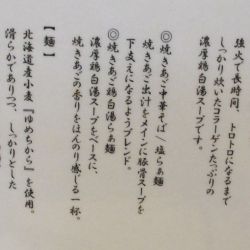 強火で長時間、トロトロになるまで
しっかり炊いたコラーゲンたっぷりの
濃厚鶏白湯スープです。
◎焼きあご中華そば〈塩らぁ麺〉
焼きあご出汁をメインに豚骨スープを
下支えになるようブレンド。
◎焼きあご鶏白湯らぁ麺
濃厚鶏白湯スープをベースに、
焼きあごの香りをほんのり感じる一杯。
【麺】
北海道産小麦『ゆめちから』を使用。
滑らかでありつつ、しっかりとした